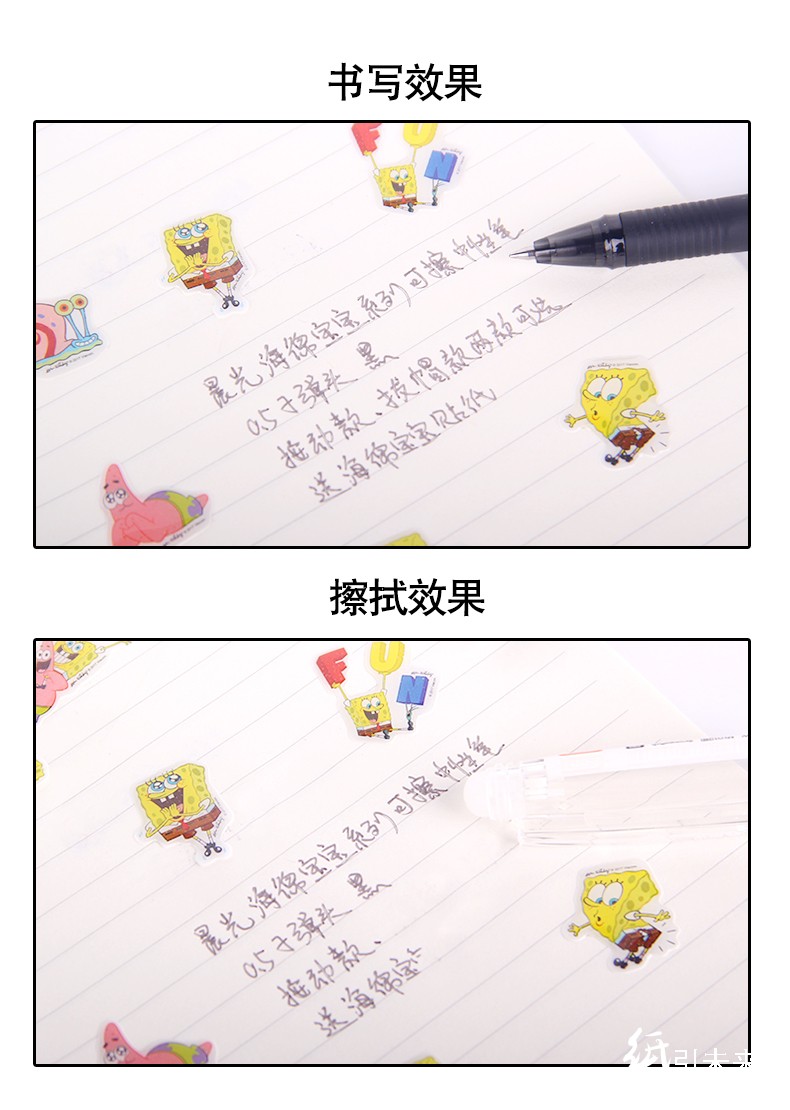 书写效果
F U
N
晨光 海绵宝宝系列 可擦中性笔
0.5 子弹头 黑
按动款、拔帽款两款可选
送海绵宝宝贴纸
擦拭效果
F U
N
晨光 海绵宝宝系列 可擦中性笔
0.5 子弹头 黑
按动款、
送海绵宝
纸引未来